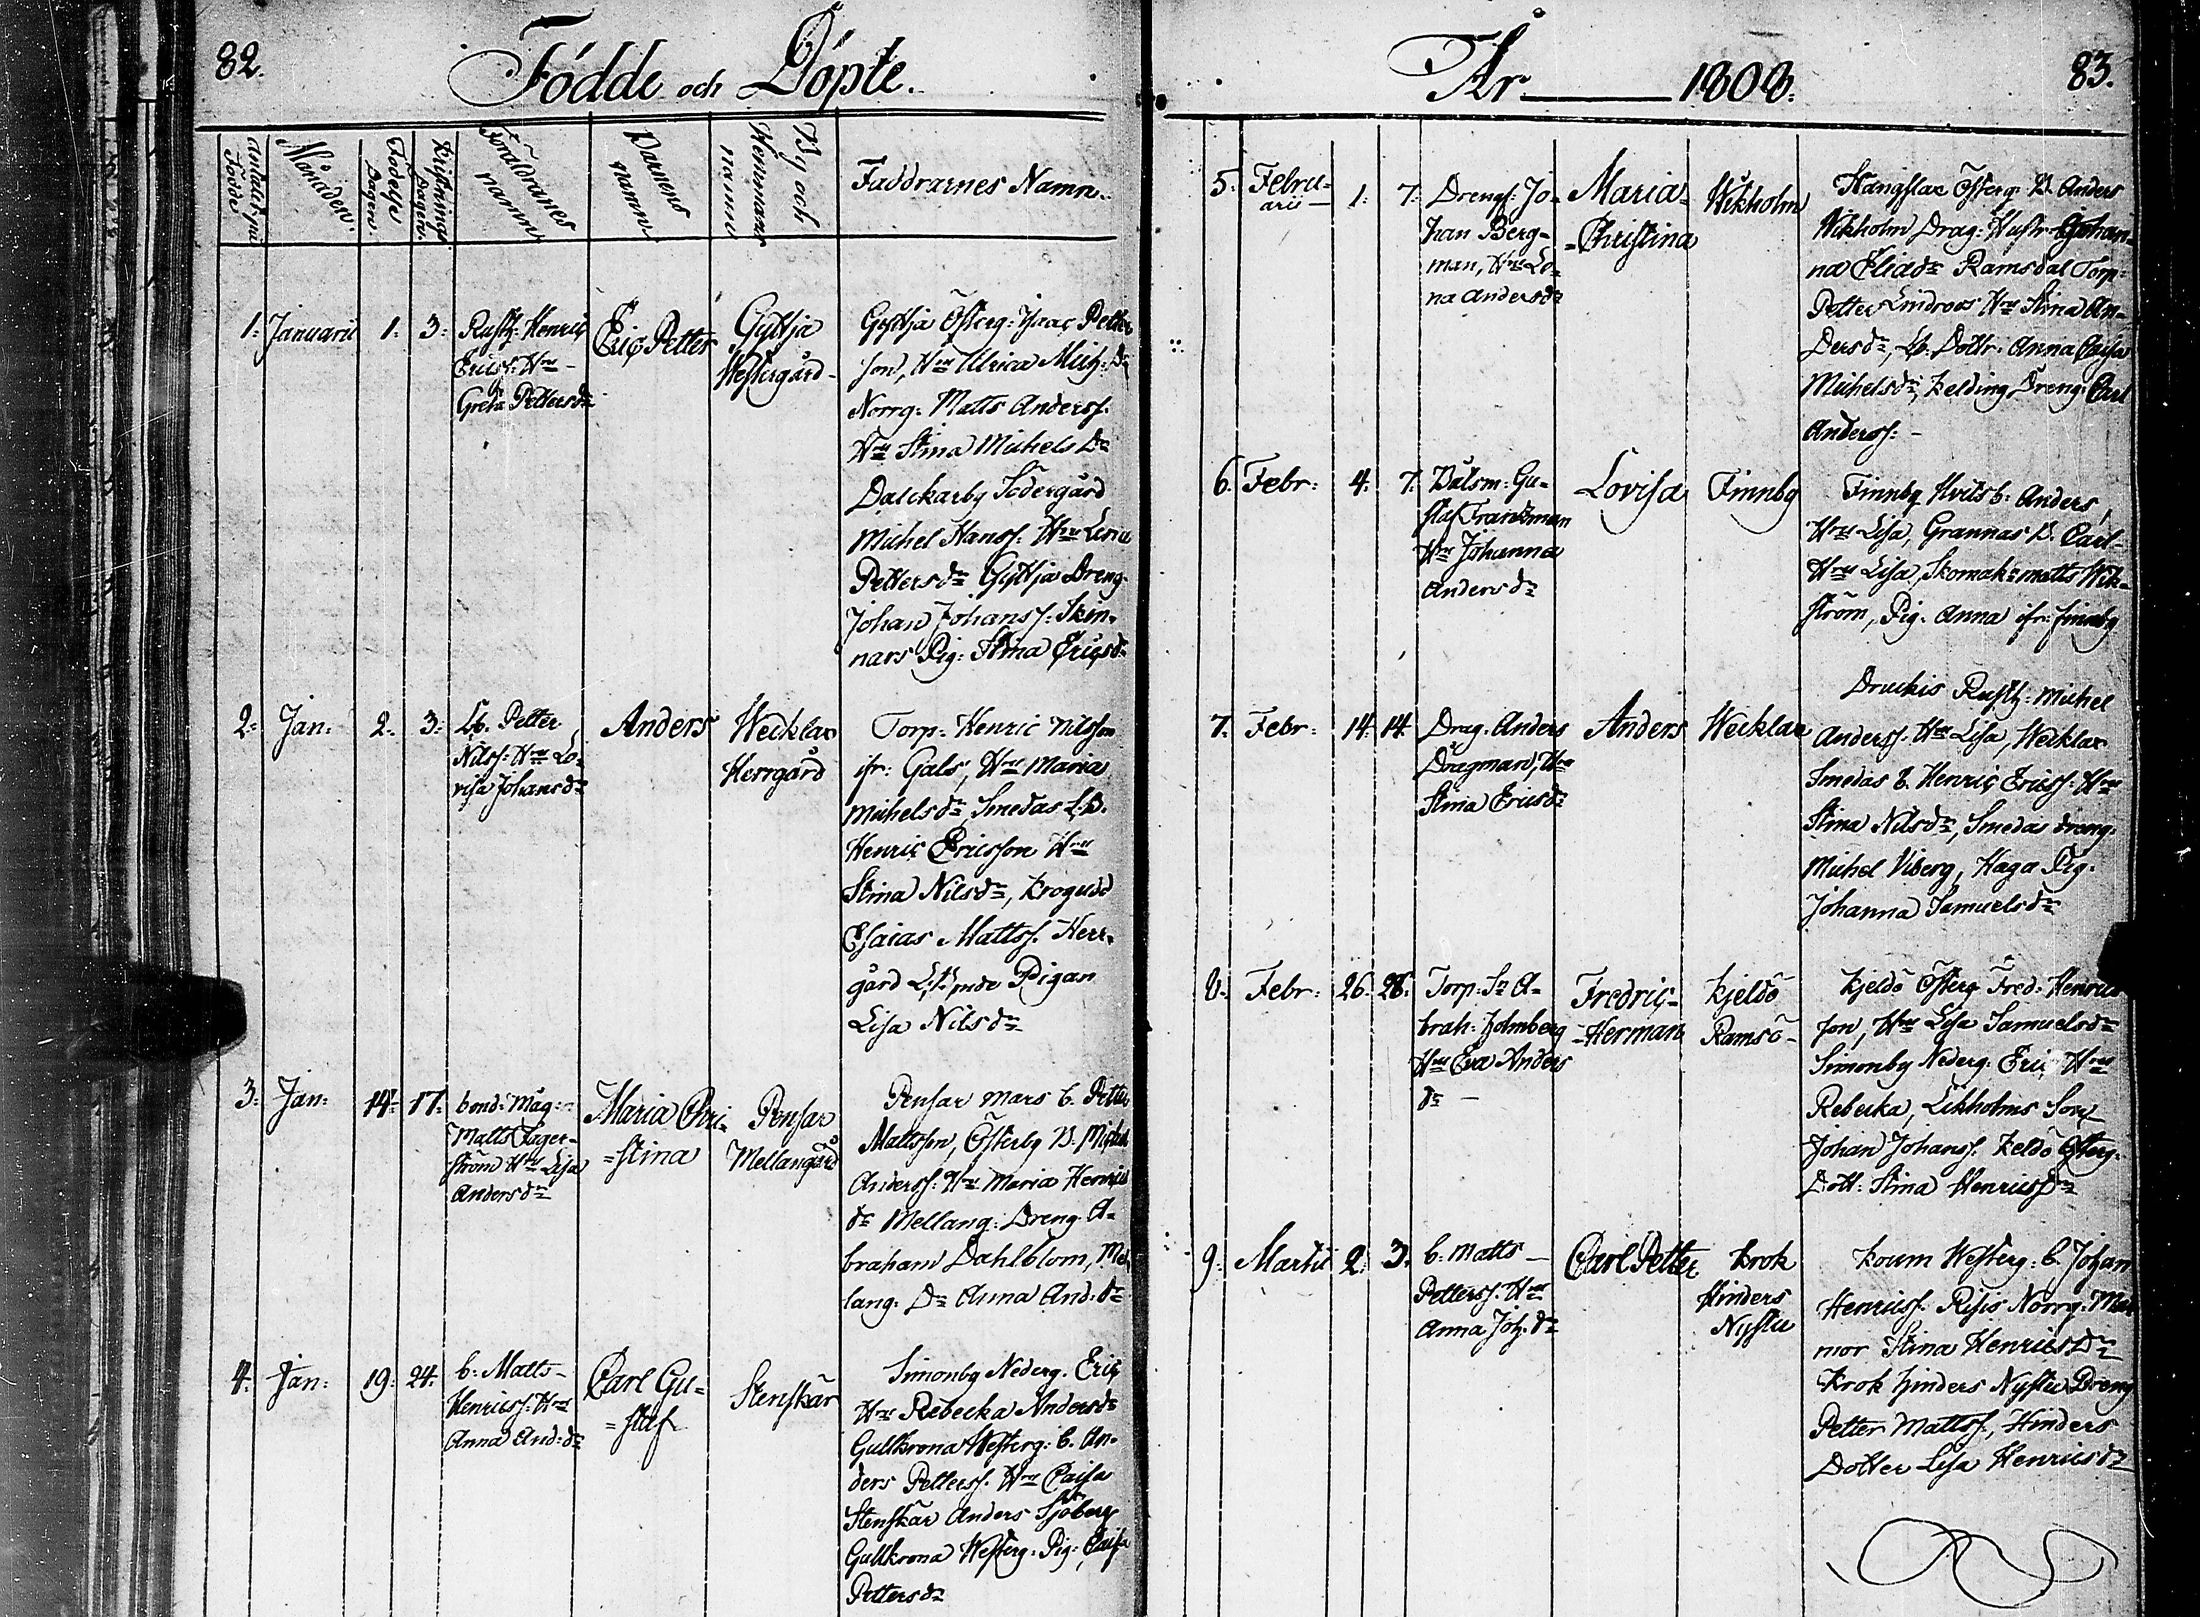 82.
Födde och Döpte.
Antalet på Födde
Månaden.
Födelse Dagen.
Christnings Dagen.
Föräldrarnes namn
Barnens namn
By och Hemmans namn
Faddrarnes Namn.
1. Januarii 1. 3.
Rusth. Henric
Ericss. Hru
Greta Pettersdr
Eric Petter
Gyttja
Westergård
Gyttja Österg: Isaac Petter
son, Hru Ulrica Mich: Dr
Norrg: Matts Anderss.
Hru Stina Michels Dr
Dalckarby Södergård
Michel Hanss. Hru Lena
Pettersdr Gyttja Dreng.
Johan Johanss: Skin-
nars Pig: Stina Ericsdr
2. Jan: 2. 3.
Lb. Petter
Nilss: Hru Lo-
visa Johansdr
Anders
Wecklax
Herrgård
Torp: Henric Nilsson
ifr: Gals, Hru Maria
Michelsdr, Smedas L.B.
Henric Ericsson Hru
Stina Nilsdr, Krogudd
Esaias Mattss. Herr-
gård Pigan
Lisa Nilsdr
3. Jan: 14. 17.
bond: Måg:
Matts Fager-
ström Hru Lisa
Andersdr
Maria Chri-
=stina
Pensar
Mellangård
Pensar Mars b. Petter
Mattsson, Österby B. Michel
Anderss: Hru Maria Henrics
dr Mellang: Dreng A-
braham Dahlblom, Mel-
lang. Dr Anna And: dr
4. Jan: 19. 24.
b: Matts
Henricss: Hru
Anna And: dr
Carl Gu=
=staf
Stenskär
Simonby Nederg. Eric
Hru Rebecka Andersdr
Gullkrona Westerg: b. An-
ders Petterss. Hru Caisa
Stenskär Anders Sjöberg
Gullkrona Westerg: Pig: Caisa
Pettersdr
År 1808.
83.
5. Febru-
arii 1. 7.
Drengs: Jo-
han Berg-
man, Hru Le-
na Andersdr
Maria=
=Christina
Wikholm
Hangslax Österg B. Anders
Wikholm Drag: Hustr Johan-
na Eliædr Ramsdal Torp:
Petter Lindroos Hru Stina An-
dersdr, Lb. Dottr: Anna Caisa
Michelsdr, Kelding, Dreng: Carl
Anderss: -
6. Febr: 4. 7.
Båtsm: Gu-
staf Frantzman
Hru Johanna
Andersdr
Lovisa
Finnby
Finnby Hvitsb: Anders,
Hru Lisa, Grannas B. Carl
Hru Lisa, Skomak: Matts Wik-
ström, Pig. Anna ifr: finnby
7. Febr: 14. 14.
Drag. Anders
Dragman, Hru
Stina Ericsdr
Anders
Wecklax
Druckis Rusth: Michel
Anderss. Hru Lisa, Wecklax
Smedas B. Henric Ericss. Hru
Stina Nilsdr, Smedas dreng:
Michel Viberg, Haga Pig.
Johanna Samuelsdr
8. Febr: 26. 28.
Torp: Sn A-
brah: Holmberg
Hru Eva Anders
dr
Fredric=
=Herman
Kjeldö
Ramsö
Kjeldö Österg Fred: Henrics
son, Hru Lisa Samuelsdr
Simonby Nederg: Eric Hru
Rebecka, Likholms Son
Johan Johanss. Keldö Österg:
Dott: Stina Henricsdr
9. Martii 2. 3.
b: Matts
Petterss. Hru
Anna Joh: dr
Carl Petter
Krok
Hinders
Nystu
Koum Westerg: b. Johan
Henricss. Risis Norrg: Mor-
mor Stina Henrics Dr
Krok Hinders Nystu Dreng
Petter Mattss, Hinders
Dotter Lisa Henricsdr